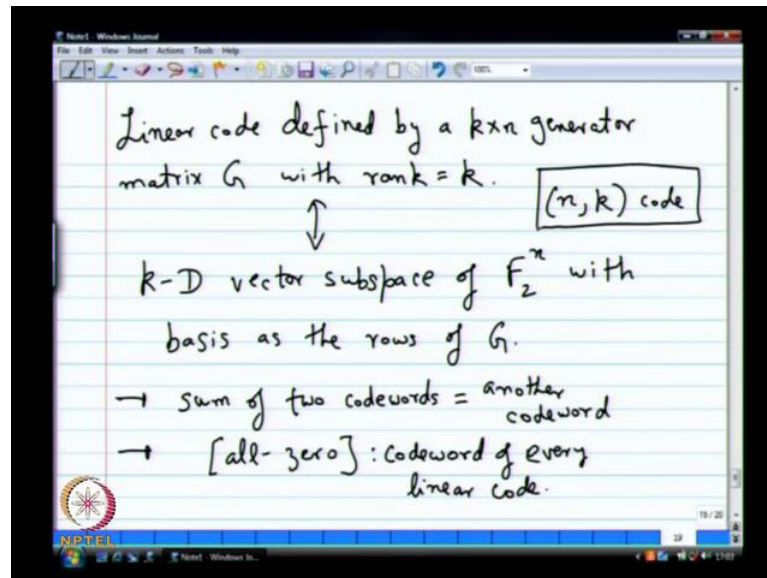 Note1 - Windows Journal
File Edit View Insert Actions Tools Help
100%
Linear code defined by a k×n generator
matrix G with rank = k.
(n, k) code
↕
k-D vector subspace of F₂ⁿ with
basis as the rows of G.
→ sum of two codewords = another codeword
→ [all-zero] : codeword of every
linear code.
19 / 20
19
NPTEL
Note1 - Windows Jo...
17:03